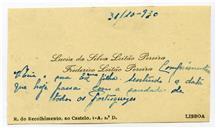 31/10-930
Lucia da Silva Leitão Pereira
Frederico Leitão Pereira
Comprimentam
e sua filha
a data
que hoje passa com a saudade de
todos os portugueses
R. do Recolhimento, ao Castelo, 1-A, 2.º D.
LISBOA